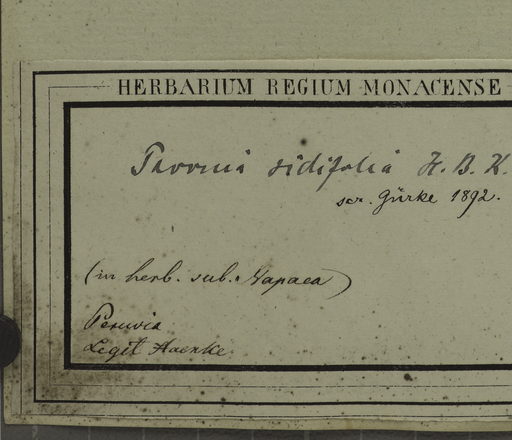 HERBARIUM REGIUM MONACENSE
Pavonia sidifolia H. B. K.
scr. Gürke 1892.
(in herb. sub. Napaea)
Peruvia
Legit Haenke.